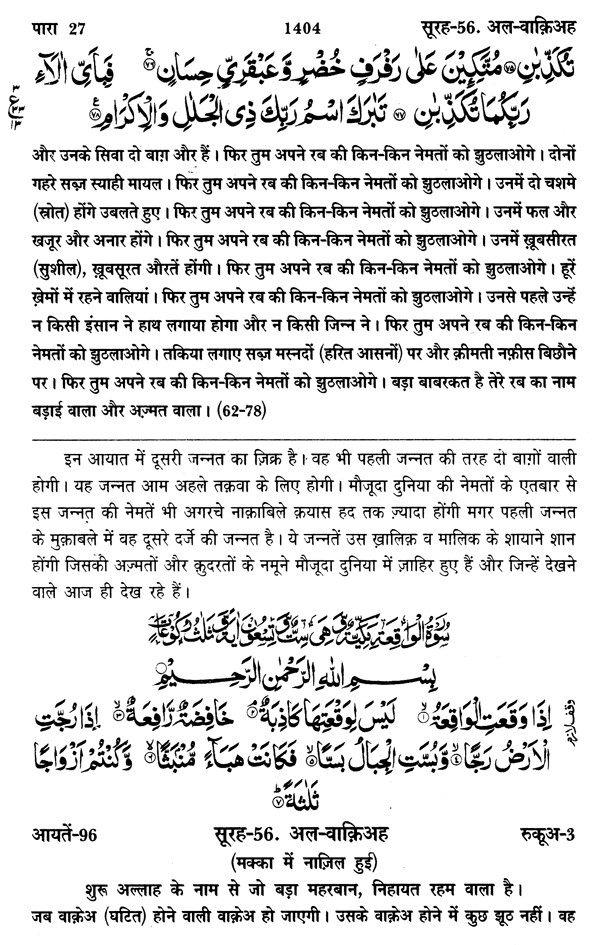 पारा 27 1404 सूरह-56. अल-वाक़िअह
تُكَذِّبٰنِ ﴿٧٥﴾ مُتَّكِـِٕيْنَ عَلٰى رَفْرَفٍ خُضْرٍ وَّعَبْقَرِيٍّ حِسَانٍ ﴿٧٦﴾ فَبِاَيِّ اٰلَآءِ
رَبِّكُمَا تُكَذِّبٰنِ ﴿٧٧﴾ تَبٰرَكَ اسْمُ رَبِّكَ ذِي الْجَلٰلِ وَالْاِكْرَامِ ﴿٧٨﴾
और उनके सिवा दो बाग़ और हैं। फिर तुम अपने रब की किन-किन नेमतों को झुठलाओगे। दोनों
गहरे सब्ज़ स्याही मायल। फिर तुम अपने रब की किन-किन नेमतों को झुठलाओगे। उनमें दो चशमे
(स्रोत) होंगे उबलते हुए। फिर तुम अपने रब की किन-किन नेमतों को झुठलाओगे। उनमें फल और
खजूर और अनार होंगे। फिर तुम अपने रब की किन-किन नेमतों को झुठलाओगे। उनमें ख़ूबसीरत
(सुशील), ख़ूबसूरत औरतें होंगी। फिर तुम अपने रब की किन-किन नेमतों को झुठलाओगे। हूरें
ख़ेमों में रहने वालियां। फिर तुम अपने रब की किन-किन नेमतों को झुठलाओगे। उनसे पहले उन्हें
न किसी इंसान ने हाथ लगाया होगा और न किसी जिन्न ने। फिर तुम अपने रब की किन-किन
नेमतों को झुठलाओगे। तकिया लगाए सब्ज़ मस्नदों (हरित आसनों) पर और क़ीमती नफ़ीस बिछौने
पर। फिर तुम अपने रब की किन-किन नेमतों को झुठलाओगे। बड़ा बाबरकत है तेरे रब का नाम
बड़ाई वाला और अज़्मत वाला। (62-78)
इन आयात में दूसरी जन्नत का ज़िक्र है। वह भी पहली जन्नत की तरह दो बाग़ों वाली
होगी। यह जन्नत आम अहले तक़वा के लिए होगी। मौजूदा दुनिया की नेमतों के एतबार से
इस जन्नत की नेमतें भी अगरचे नाक़ाबिले क़यास हद तक ज़्यादा होंगी मगर पहली जन्नत
के मुक़ाबले में वह दूसरे दर्जे की जन्नत है। ये जन्नतें उस ख़ालिक़ व मालिक के शायाने शान
होंगी जिसकी अज़्मतों और क़ुदरतों के नमूने मौजूदा दुनिया में ज़ाहिर हुए हैं और जिन्हें देखने
वाले आज ही देख रहे हैं।
سُوْرَةُ الْوَاقِعَةِ مَكِّيَّةٌ وَّهِيَ سِتٌّ وَّتِسْعُوْنَ اٰيَةً وَّثَلٰثُ رُكُوْعَاتٍ
بِسْمِ اللّٰهِ الرَّحْمٰنِ الرَّحِيْمِ
اِذَا وَقَعَتِ الْوَاقِعَةُ ﴿١﴾ لَيْسَ لِوَقْعَتِهَا كَاذِبَةٌ ﴿٢﴾ خَافِضَةٌ رَّافِعَةٌ ﴿٣﴾ اِذَا رُجَّتِ
الْاَرْضُ رَجًّا ﴿٤﴾ وَّبُسَّتِ الْجِبَالُ بَسًّا ﴿٥﴾ فَكَانَتْ هَبَآءً مُّنْۢبَثًّا ﴿٦﴾ وَّكُنْتُمْ اَزْوَاجًا
ثَلٰثَةً ﴿٧﴾
आयतें-96 सूरह-56. अल-वाक़िअह रुकूअ-3
(मक्का में नाज़िल हुई)
शुरू अल्लाह के नाम से जो बड़ा महरबान, निहायत रहम वाला है।
जब वाक़ेअ (घटित) होने वाली वाक़ेअ हो जाएगी। उसके वाक़ेअ होने में कुछ झूठ नहीं। वह